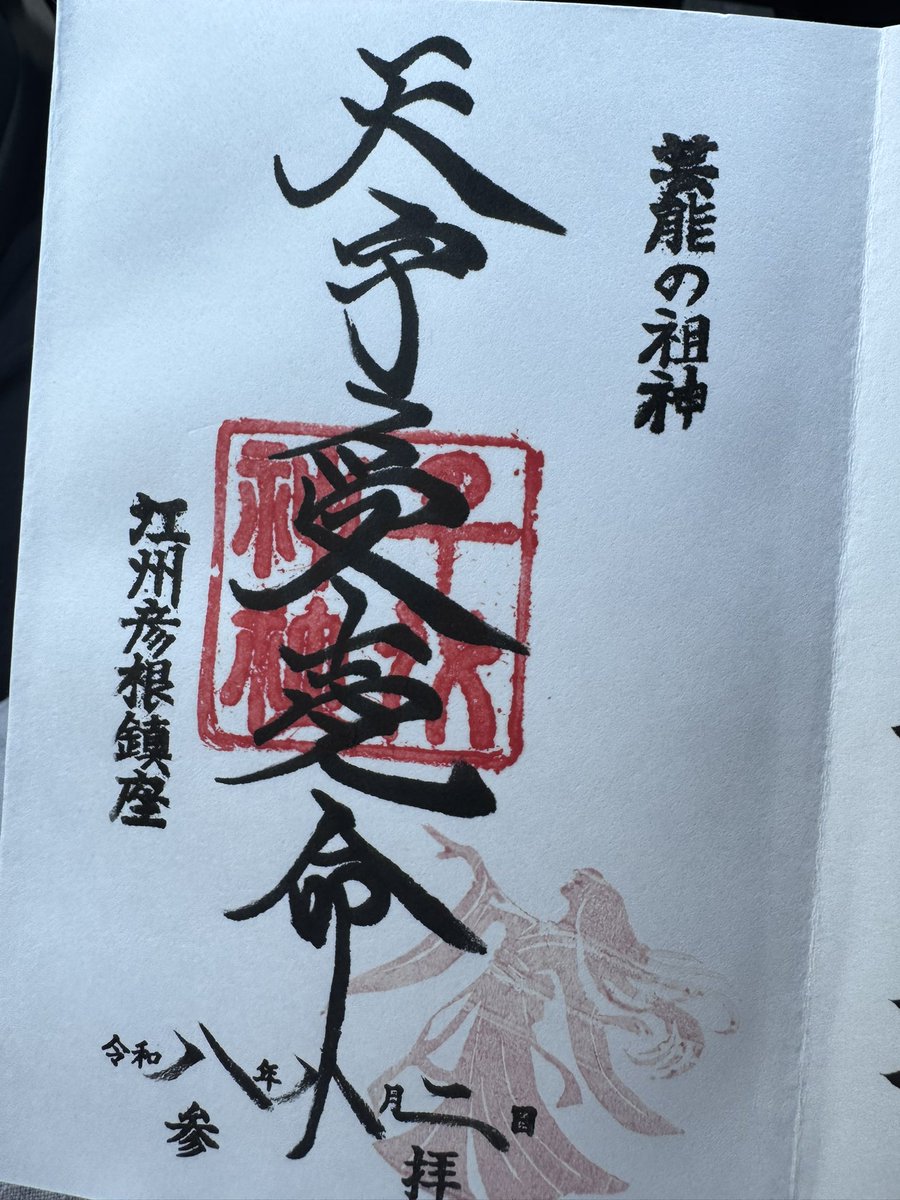 芸能の祖神
天宇受売命
江州彦根鎮座
令和八年八月二日
参拝